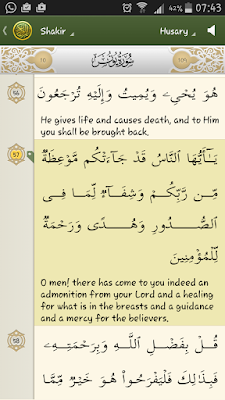 42% 07:43
Shakir Husary
10 سُورَةُ يُونُسَ 109
56 هُوَ يُحْيِۦ وَيُمِيتُ وَإِلَيْهِ تُرْجَعُونَ
He gives life and causes death, and to Him
you shall be brought back.
57 يَـٰٓأَيُّهَا ٱلنَّاسُ قَدْ جَآءَتْكُم مَّوْعِظَةٌ
مِّن رَّبِّكُمْ وَشِفَآءٌ لِّمَا فِى
ٱلصُّدُورِ وَهُدًى وَرَحْمَةٌ
لِّلْمُؤْمِنِينَ
O men! there has come to you indeed an
admonition from your Lord and a healing
for what is in the breasts and a guidance
and a mercy for the believers.
58 قُلْ بِفَضْلِ ٱللَّهِ وَبِرَحْمَتِهِۦ
فَبِذَٰلِكَ فَلْيَفْرَحُوا۟ هُوَ خَيْرٌ مِّمَّا